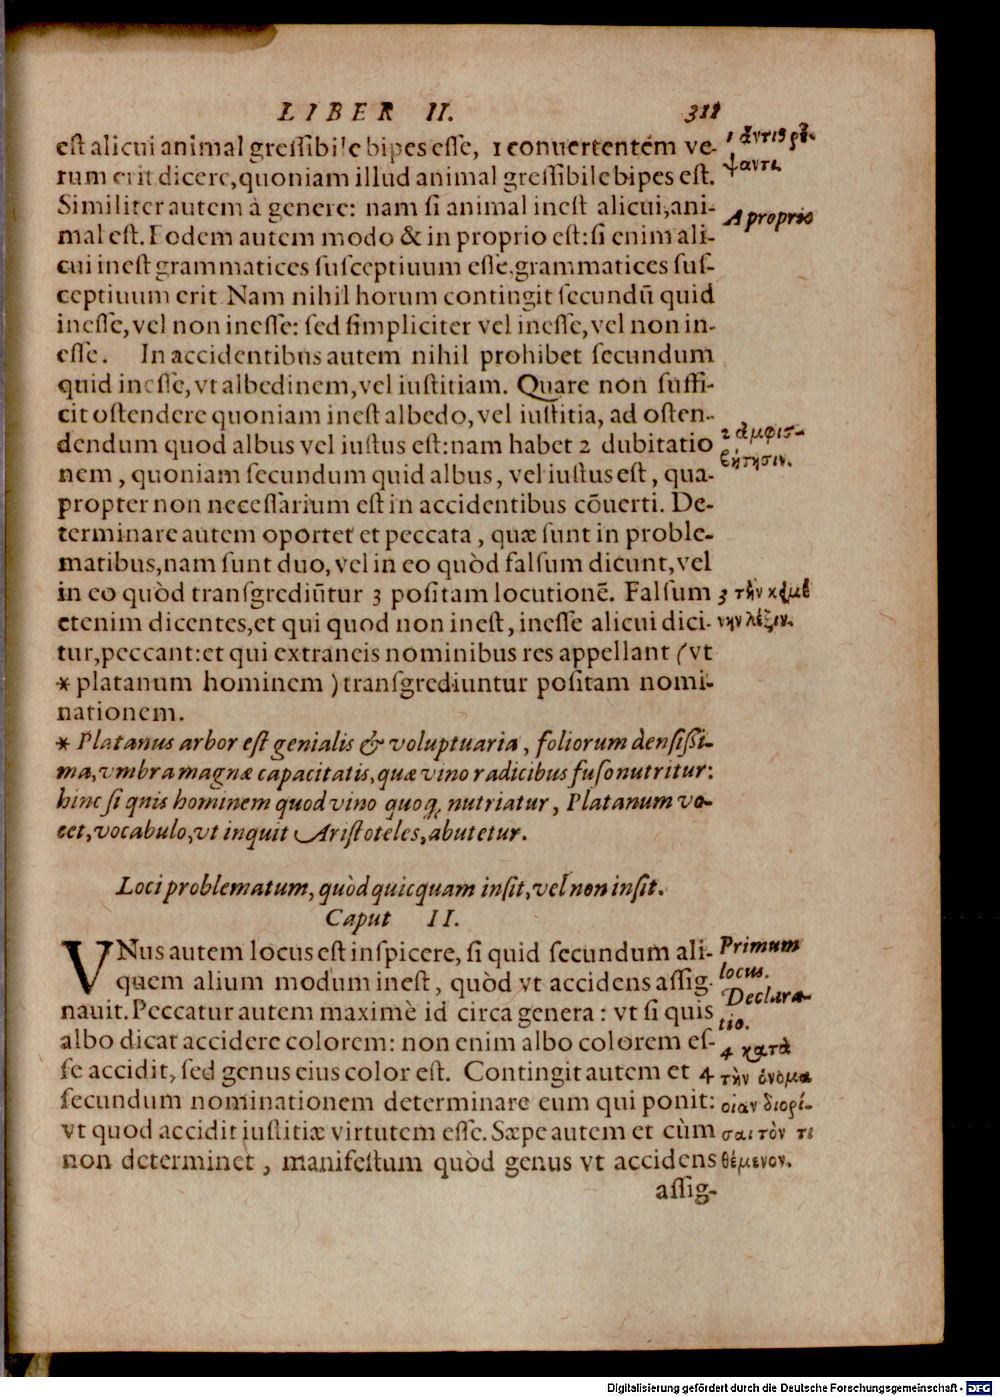 LIBER II. 311
est alicui animal gressibile bipes esse, 1 conuertentem ve-
rum erit dicere, quoniam illud animal gressibile bipes est.
Similiter autem à genere: nam si animal inest alicui, ani-
mal est. Eodem autem modo & in proprio est: si enim ali-
cui inest grammatices susceptiuum esse, grammatices sus-
ceptiuum erit Nam nihil horum contingit secundū quid
inesse, vel non inesse: sed simpliciter vel inesse, vel non in-
esse. In accidentibus autem nihil prohibet secundum
quid inesse, vt albedinem, vel iustitiam. Quare non suffi-
cit ostendere quoniam inest albedo, vel iustitia, ad osten-
dendum quod albus vel iustus est: nam habet 2 dubitatio
nem, quoniam secundum quid albus, vel iustus est, qua-
propter non necessarium est in accidentibus cōuerti. De-
terminare autem oportet et peccata, quæ sunt in proble-
matibus, nam sunt duo, vel in eo quòd falsum dicunt, vel
in eo quòd transgrediūtur 3 positam locutionē. Falsum
etenim dicentes, et qui quod non inest, inesse alicui dici-
tur, peccant: et qui extraneis nominibus res appellant (vt
* platanum hominem) transgrediuntur positam nomi-
nationem.
* Platanus arbor est genialis & voluptuaria, foliorum densissi-
ma, vmbra magnæ capacitatis, quæ vino radicibus fuso nutritur:
hinc si quis hominem quod vino quoq; nutriatur, Platanum vo-
cet, vocabulo, vt inquit Aristoteles, abutetur.
Loci problematum, quòd quicquam insit, vel non insit.
Caput II.
VNus autem locus est inspicere, si quid secundum ali-
quem alium modum inest, quòd vt accidens assig-
nauit. Peccatur autem maximè id circa genera: vt si quis
albo dicat accidere colorem: non enim albo colorem es-
se accidit, sed genus eius color est. Contingit autem et 4
secundum nominationem determinare eum qui ponit:
vt quod accidit iustitiæ virtutem esse. Sæpe autem et cùm
non determinet, manifestum quòd genus vt accidens
assig-
1 ἀντιστρέ-
ψαντι
A proprio
2 ἀμφισ-
βήτησιν.
3 τὴν κειμέ
νην λέξιν.
Primum
locus.
Declara-
tio.
4 κατὰ
τὴν ὀνομα
σίαν διορί-
σαι τὸν τι
θέμενον.
Digitalisierung gefördert durch die Deutsche Forschungsgemeinschaft - DFG